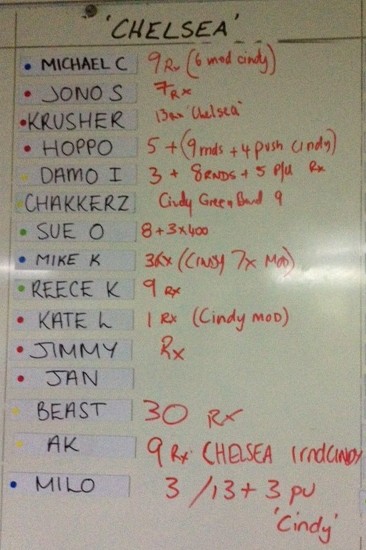 'CHELSEA'
MICHAEL C 9 Rx (6 mod cindy)
JONO S 7 Rx
KRUSHER 13 Rx 'Chelsea'
HOPPO 5 + (9 rnds + 4 push cindy)
DAMO I 3 + 8 RNDS + 5 P/U Rx
CHAKKERZ Cindy Green Band 9
SUE O 8 + 3x400
MIKE K 3 Rx (CINDY 7x MOD)
REECE K 9 Rx
KATE L 1 Rx (Cindy mod)
JIMMY Rx
JAN
BEAST 30 Rx
AK 9 Rx CHELSEA 1 rnd CINDY
MILO 3 / 13 + 3 PU
'Cindy'